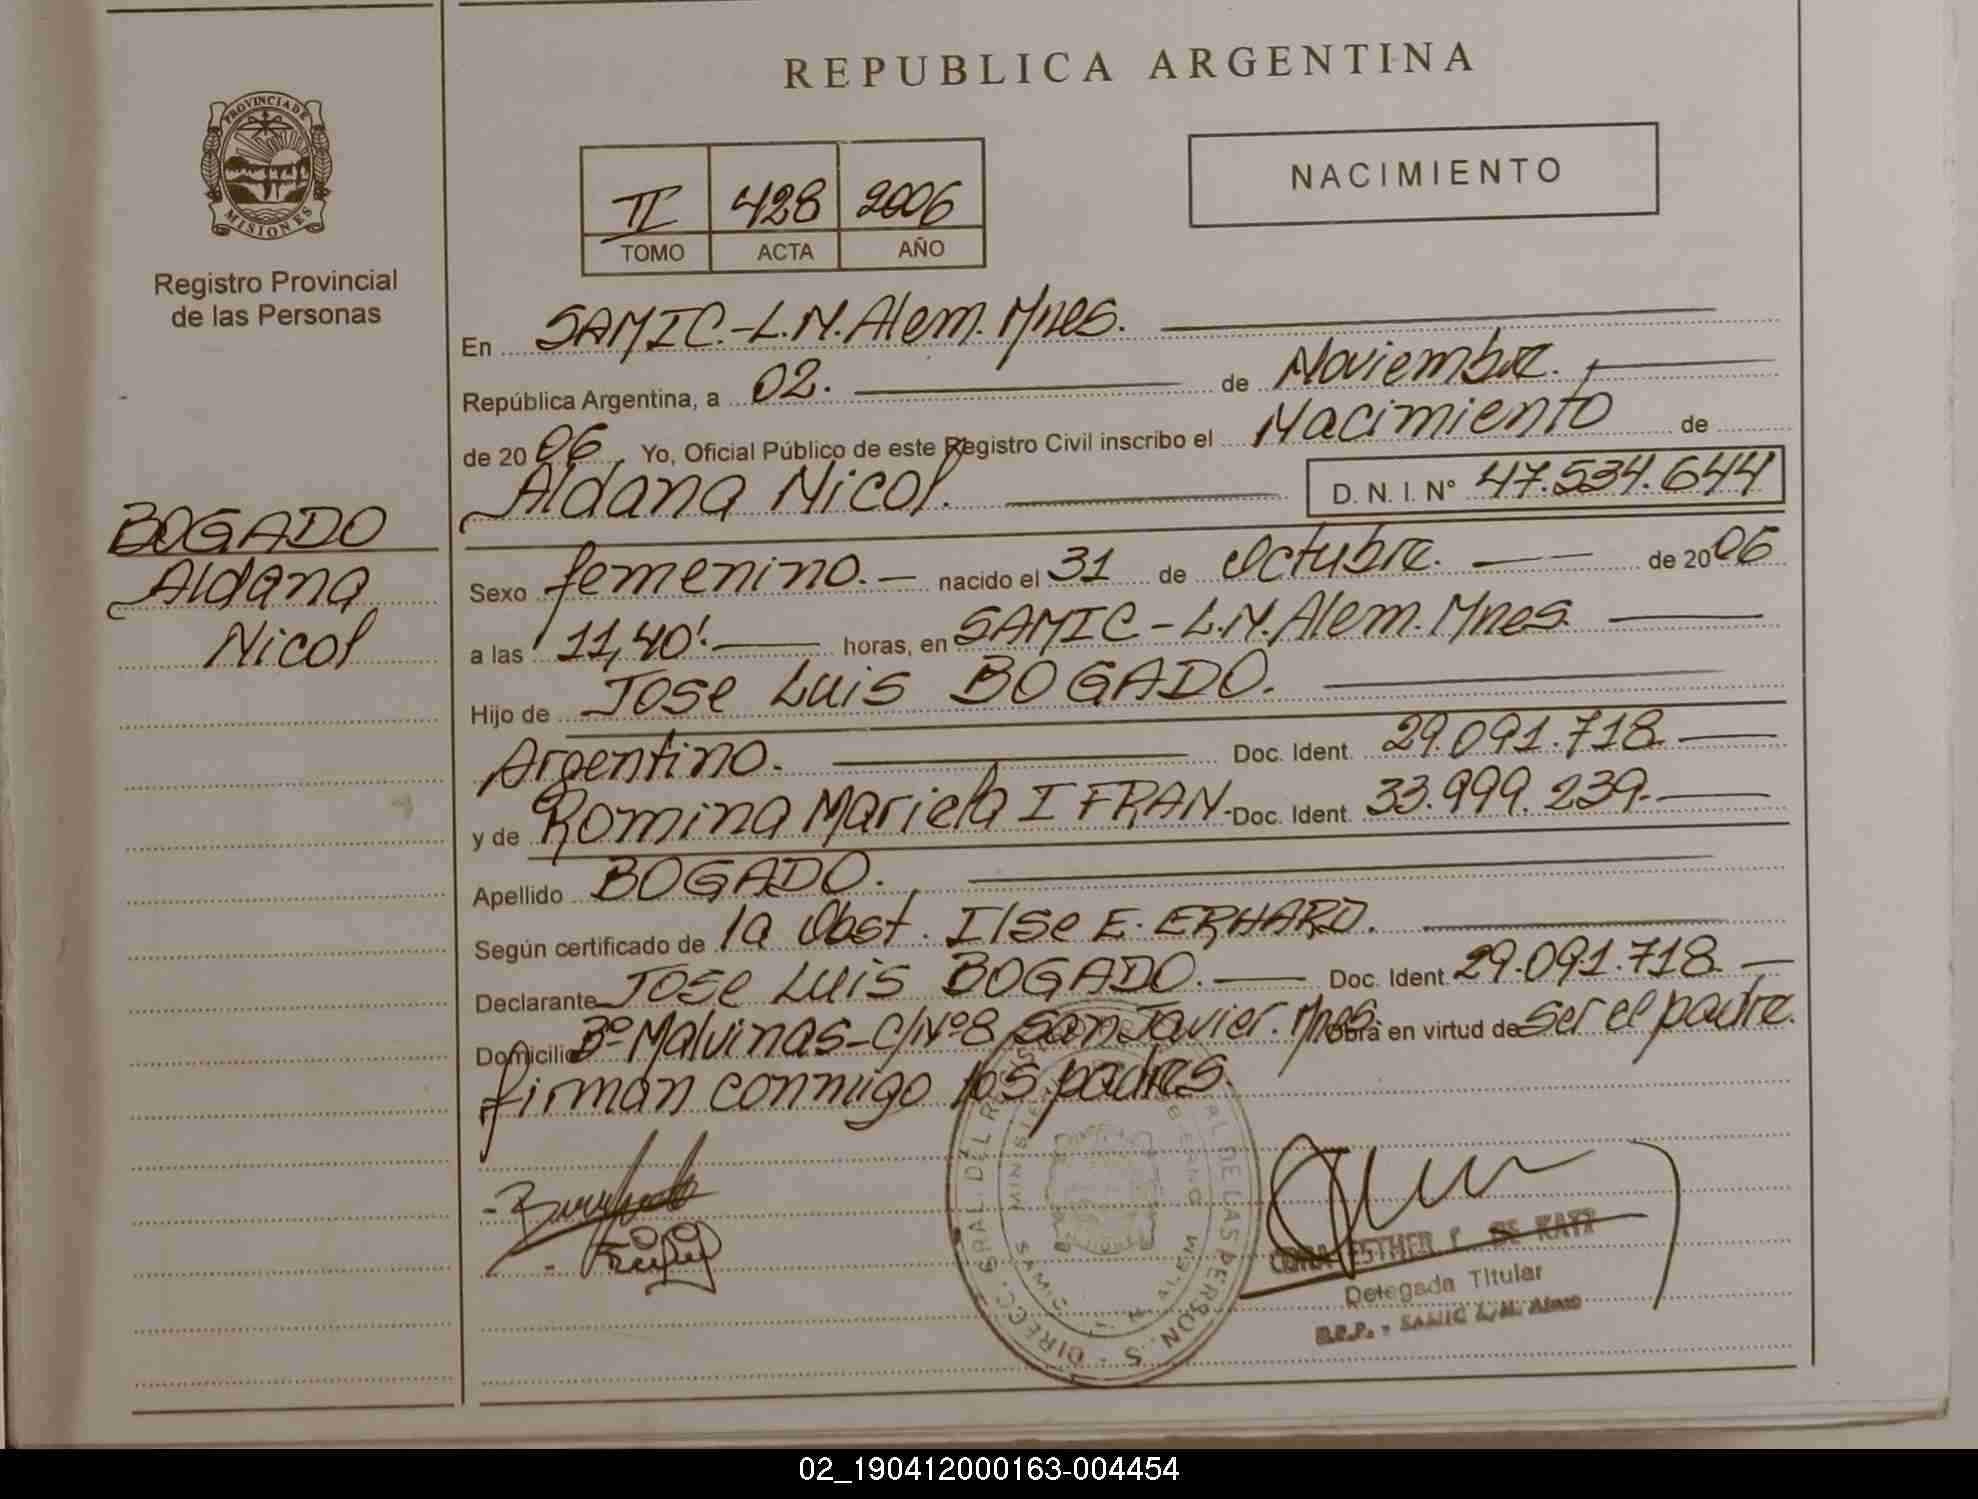 REPUBLICA ARGENTINA
PROVINCIA DE
MISIONES
Registro Provincial
de las Personas
II 428 2006
TOMO ACTA AÑO
NACIMIENTO
En SAMIC.-L.N.Alem.Mnes.
República Argentina, a 02. de Noviembre.
de 2006 Yo, Oficial Público de este Registro Civil inscribo el Nacimiento de
Aldana Nicol. D. N. I. N° 47.534.644
BOGADO
Aldana
Nicol
Sexo femenino.- nacido el 31 de Octubre. de 2006
a las 11,40'. horas, en SAMIC-L.N.Alem.Mnes.
Hijo de Jose Luis BOGADO.
Argentino. Doc. Ident. 29.091.718
y de Romina Mariela IFRAN- Doc. Ident. 33.999.239.
Apellido BOGADO.
Según certificado de la Obst. Ilse E. ERHARD.
Declarante Jose Luis BOGADO. Doc. Ident. 29.091.718
Domicilio B° Malvinas-C/N°8 San Javier. Mnes. Obra en virtud de ser el padre.
firman conmigo los padres.
ESTHER DE KATZ
Delegada Titular
SAMIC L.N. Alem
02_190412000163-004454